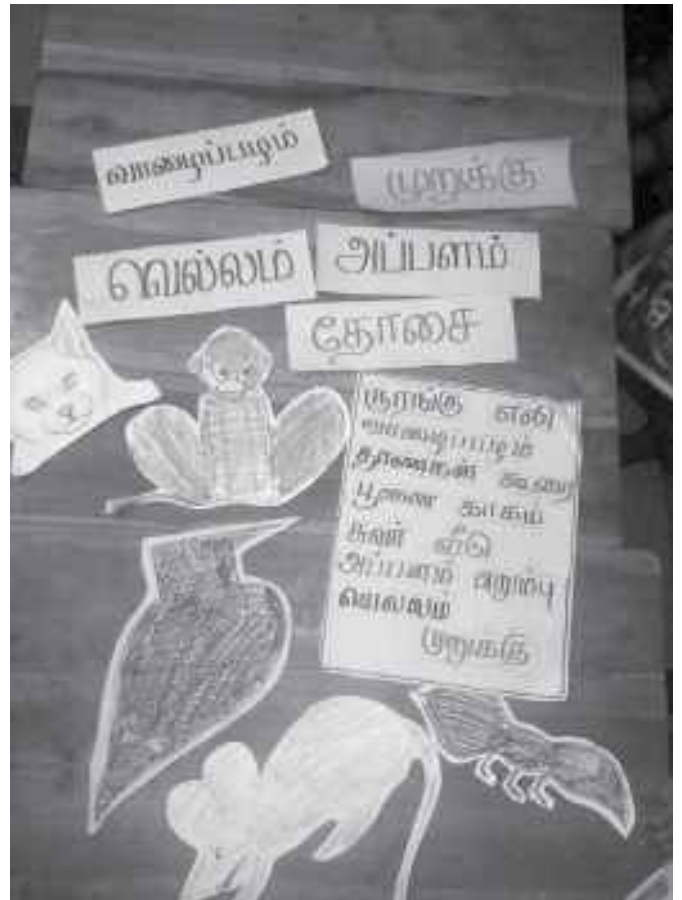 வாழைப்பழம்
முறுக்கு
வெல்லம்
அப்பளம்
தோசை
குரங்கு எலி
வாழைப்பழம்
தானியங்கள் கூரை
பூனை காகம்
சுவர் வீடு
அப்பளம் எறும்பு
வெல்லம்
முறுக்கு